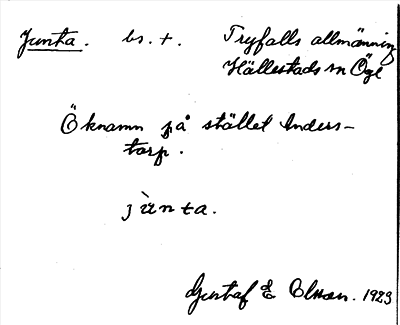 Junta. bs. t. Tryfalls allmänning
Hällestads sn Ögl
Öknamn på stället Anders-
torp.
jùnta.
Gustaf E Olsson. 1923